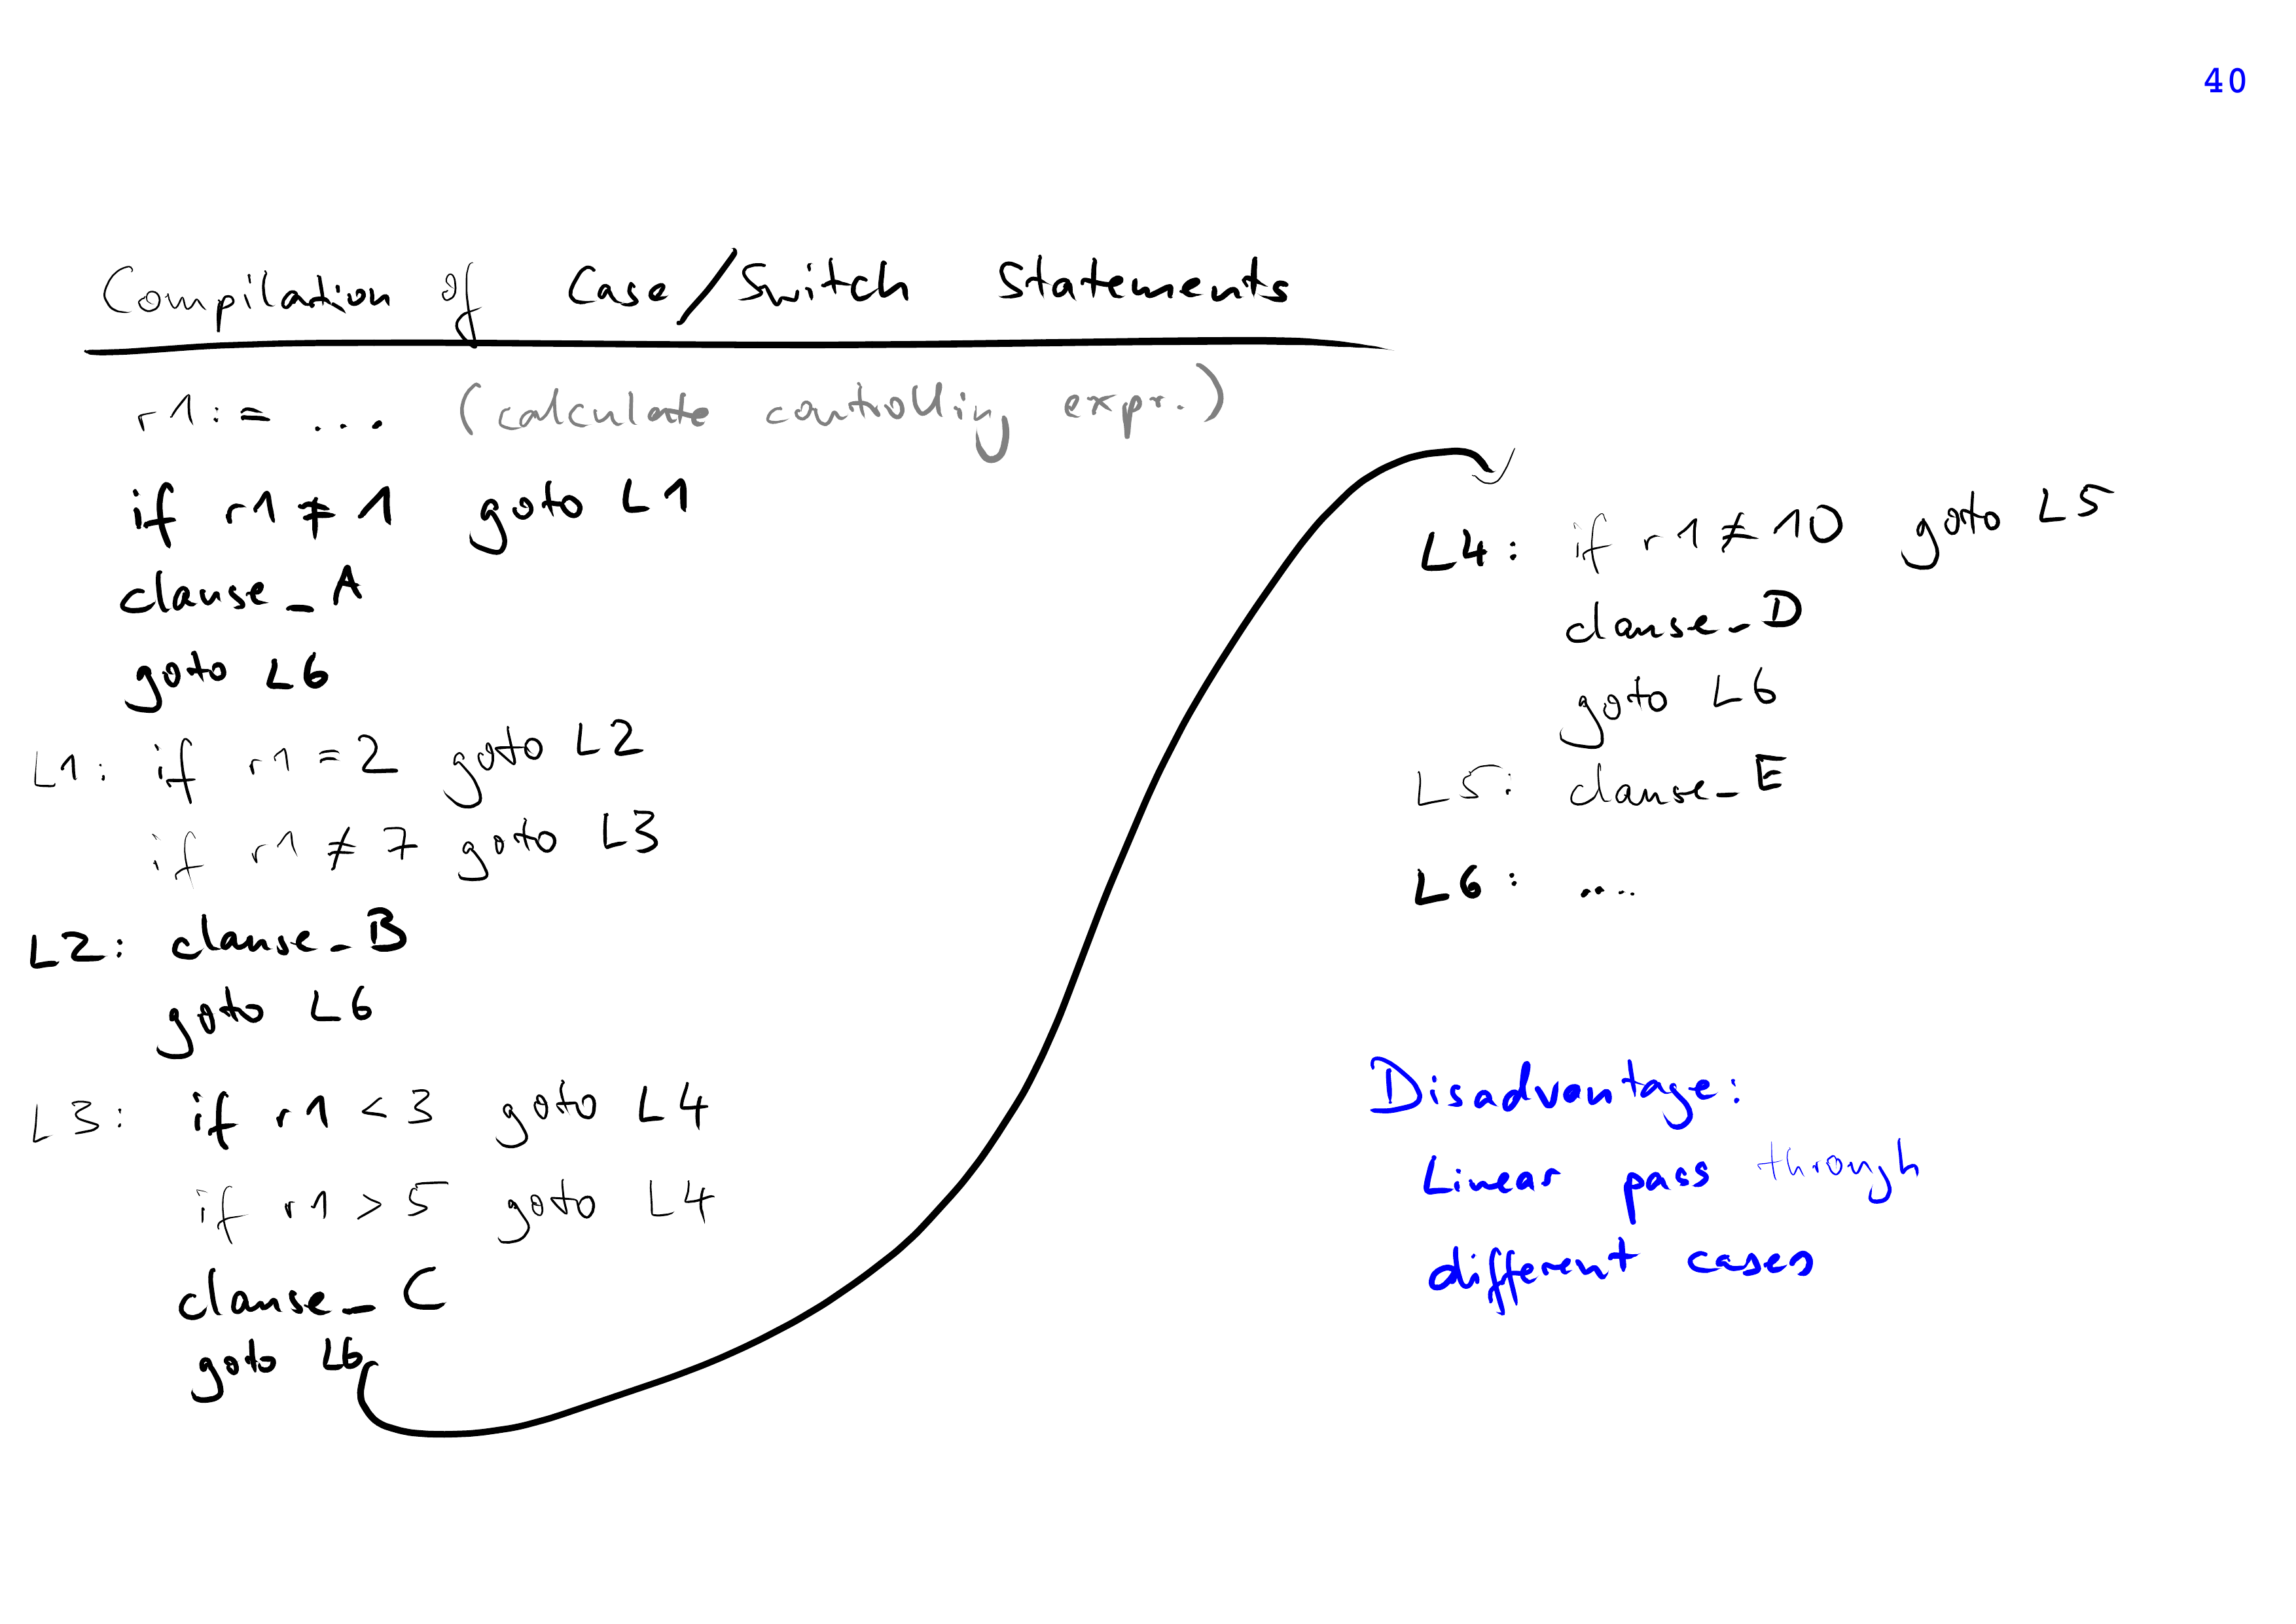 40
Compilation of Case/Switch Statements
r1 := ... (calculate controlling expr.)
if r1 ≠ 1 goto L1
clause_A
goto L6
L1: if r1 = 2 goto L2
if r1 ≠ 7 goto L3
L2: clause_B
goto L6
L3: if r1 < 3 goto L4
if r1 > 5 goto L4
clause_C
goto L6
L4: if r1 ≠ 10 goto L5
clause_D
goto L6
L5: clause_E
L6: ....
Disadvantage:
Linear pass through
different cases